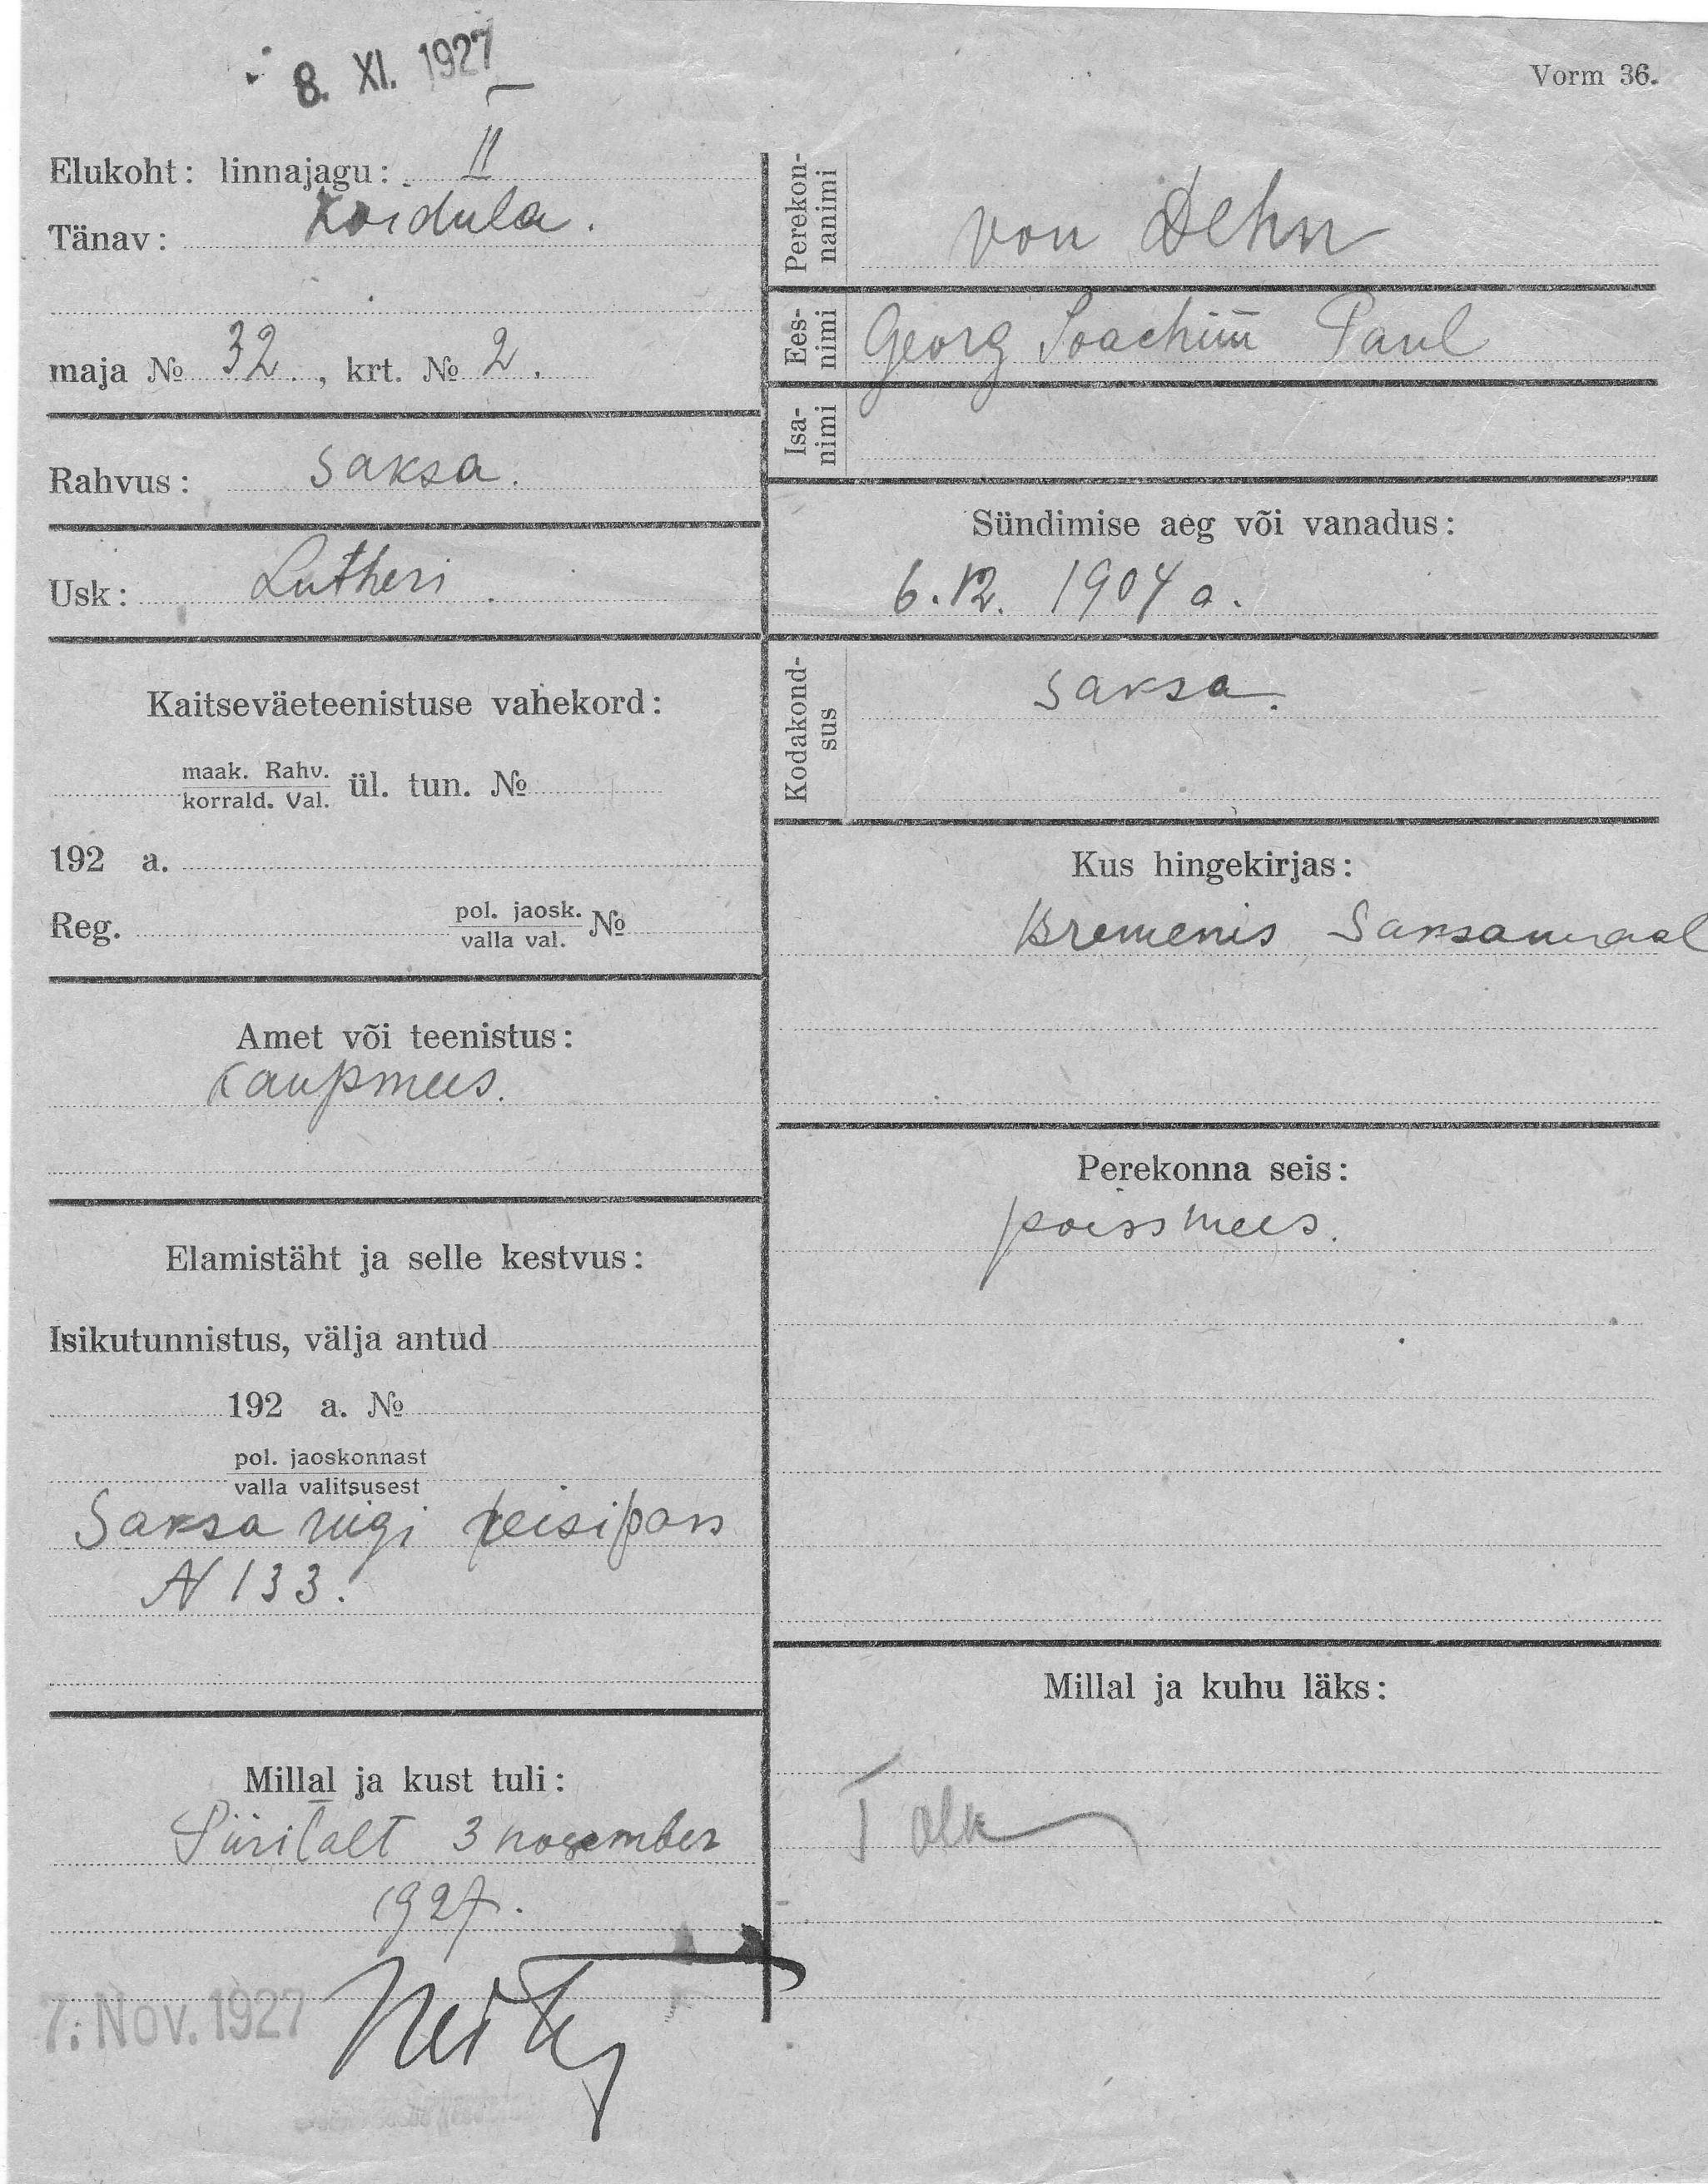 8. XI. 1927
Vorm 36.
Elukoht: linnajagu: II
Tänav: Koidula.
maja № 32., krt. № 2.
Rahvus: saksa.
Usk: Lutheri.
Kaitseväeteenistuse vahekord:
maak. Rahv.
korrald. Val. ül. tun. №
192 a.
Reg. pol. jaosk.
valla val. №
Amet või teenistus:
Kaupmees.
Elamistäht ja selle kestvus:
Isikutunnistus, välja antud
192 a. №
pol. jaoskonnast
valla valitsusest
Saksa riigi reisipass
N 133.
Millal ja kust tuli:
3 november
1927.
7. Nov. 1927
Perekon-
nanimi
von Dehn
Ees-
nimi
Georg Joachim Paul
Isa-
nimi
Sündimise aeg või vanadus:
6.12. 1904 a.
Kodakond-
sus
saksa.
Kus hingekirjas:
Bremenis Saksamaal
Perekonna seis:
poissmees.
Millal ja kuhu läks: